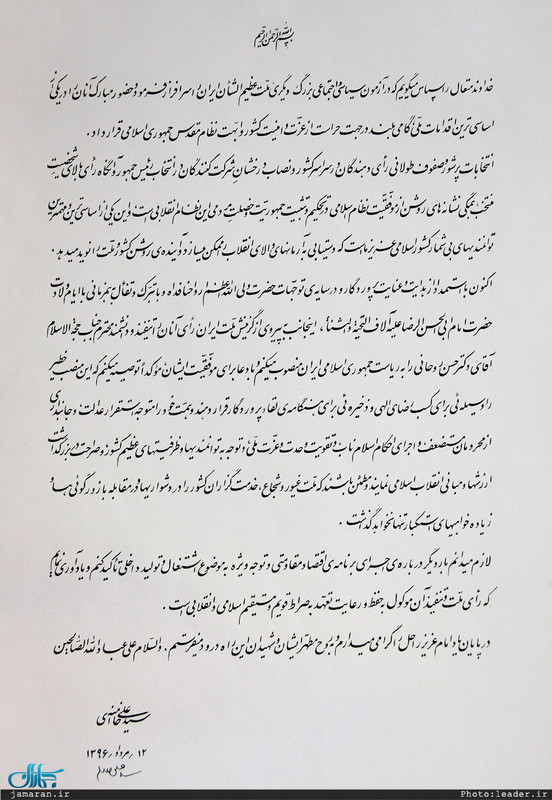 بسم الله الرحمن الرحیم
خداوند متعال را سپاس میگویم که در آزمون سیاسی و اجتماعی بزرگ دیگری ملت عظیم‌الشأن ایران را سرافراز فرمود و حضور مبارک آنان را در یکی از
اساسی‌ترین اقدامات ملی گامی بلند در جهت حراست از عزت و امنیت کشور و ابهت نظام مقدس جمهوری اسلامی قرار داد.
انتخابات پرشور و صفوف طولانی رأی دهندگان در سراسر کشور و نصاب درخشان شرکت کنندگان در انتخاب رئیس جمهور و آنگاه رأی بالای شخصیت
منتخب، همگی نشانه‌های روشن از موفقیت نظام اسلامی در تحکیم و تثبیت جمهوریت و اصلیت مردمی این نظام انقلابی است. و این یکی از اساسی‌ترین و مهمترین
توانمندیهای بی‌شمار کشور اسلامی عزیز ما است که دستیابی به آرمانهای والای انقلاب را ممکن میسازد و آینده‌ی روشن کشور و ملت را نوید میدهد.
اکنون با استمداد از هدایت و عنایت پروردگار و در سایه‌ی توجهات حضرت ولی الله اعظم روحنا فداه و با تبرک و تفأل به همزمانی با ایام ولادت
حضرت امام ابی الحسن الرضا علیه آلاف التحیة و الثناء، اینجانب به پیروی از گزینش ملت ایران رأی آنان را تنفیذ و دانشمند محترم جناب حجةالاسلام
آقای دکتر حسن روحانی را به ریاست جمهوری اسلامی ایران منصوب میکنم و با دعا برای موفقیت ایشان مؤکداً توصیه میکنم که این منصب خطیر
را وسیله‌ئی برای کسب رضای الهی و ذخیره‌ئی برای هنگامه‌ی لقاء پروردگار قرار دهند و همت خود را متوجه استقرار عدالت و جانبداری
از محرومان و مستضعفان و اجرای احکام اسلام ناب و تقویت وحدت و عزت ملی و توجه به توانمندیها و ظرفیتهای عظیم کشور و صراحت در بزرگداشت
ارزشها و مبانی انقلاب اسلامی نمایند و مطمئن باشند که ملت غیور و شجاع، خدمت‌گزاران کشور را در دشواریها و در مقابله با زورگوئی‌ها و
زیاده‌خواهیهای استکبار تنها نخواهد گذاشت.
لازم میدانم بار دیگر درباره‌ی اجرای برنامه‌ی اقتصاد مقاومتی و توجه ویژه به موضوع اشتغال و تولید داخلی تأکید کنم و یادآوری نمایم
که رأی ملت و تنفیذ آن موکول به حفظ و رعایت تعهد به صراط قویم و مستقیم اسلامی و انقلابی است.
در پایان یاد امام عزیز راحل را گرامی میدارم و به روح مطهر ایشان و شهیدان این راه درود میفرستم. والسلام علی عباد الله الصالحین
سید علی خامنه‌ای
۱۲ مرداد ۱۳۹۶
جماران
jamaran.ir
Photo:leader.ir